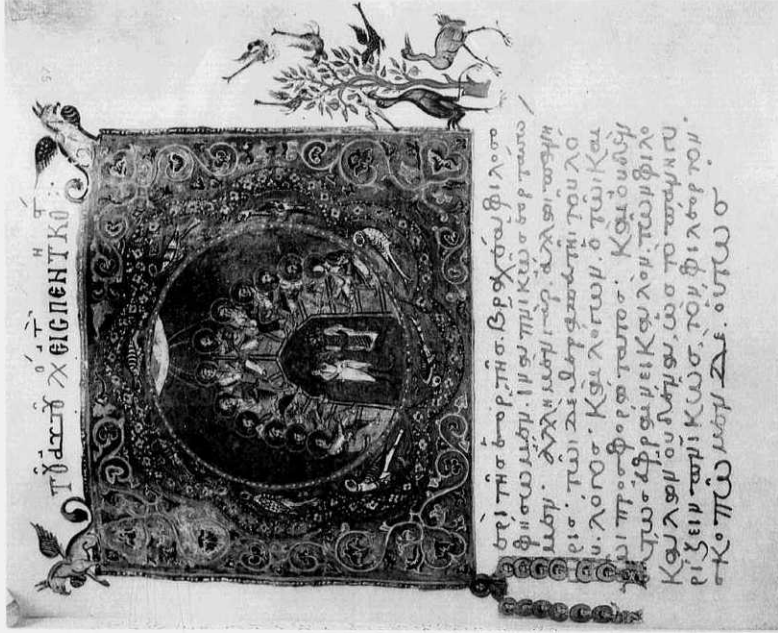 τοῦ αὐτοῦ λό εἰς τ πεντηκο
Περὶ τῆς ἑορτῆς βραχέα φιλοσο
φήσωμεν ἵνα πνικῶς ἑορτάσω
μεν. ἄλλη μὲν γὰρ ἄλλω πανήγυ
ρις· τῶι δὲ θεραπευτῆι τοῦ λό
γου, λόγος· καὶ λόγων ὁ τῶι και
ρῶι προσφορώτατος. Καὶ οὐδὲν
οὕτως εὐφραίνει καλὸν τῶν φιλο
κάλων οὐδένα ὡς τὸ πανηγυ
ρίζειν πνικῶς τὸν φιλέορτον.
σκοπῶμεν δὲ οὕτως